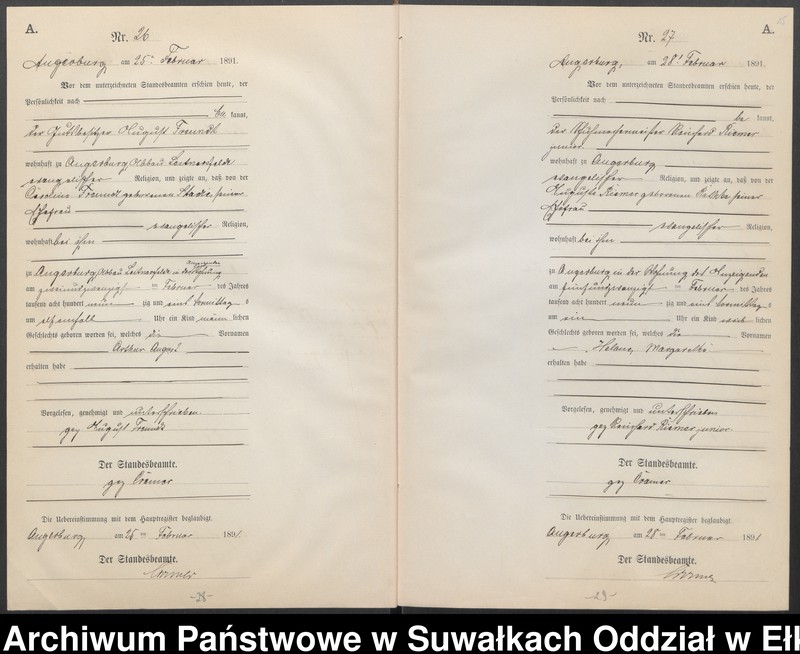 A.
Nr. 26
Angerburg, am 25. Februar 1891.
Vor dem unterzeichneten Standesbeamten erschien heute, der
Persönlichkeit nach
be kannt,
der Gutsbesitzer August Freundt
wohnhaft zu Angerburg Abbau
evangelischer Religion, und zeigte an, daß von der
Freundt geborenen seiner
Ehefrau
evangelischer Religion,
wohnhaft bei ihm
zu Angerburg Abbau in der Wohnung
am zweiundzwanzigsten Februar des Jahres
tausend acht hundert neun zig und eins Vormittag s
um Uhr ein Kind männ lichen
Geschlechts geboren worden sei, welches die Vornamen
Arthur August
erhalten habe
Vorgelesen, genehmigt und unterschrieben.
gez August Freundt
Der Standesbeamte.
gez Cramer
Die Uebereinstimmung mit dem Hauptregister beglaubigt.
Angerburg, am 25ten Februar 1891.
Der Standesbeamte.
-28-
A.
Nr. 27
Angerburg, am 28. Februar 1891.
Vor dem unterzeichneten Standesbeamten erschien heute, der
Persönlichkeit nach
be kannt,
der Schuhmachermeister Reinhard Riemer
junior
wohnhaft zu Angerburg
evangelischer Religion, und zeigte an, daß von der
Auguste Riemer geborenen seiner
Ehefrau
evangelischer Religion,
wohnhaft bei ihm
zu Angerburg in der Wohnung des Anzeigenden
am fünfundzwanzigsten Februar des Jahres
tausend acht hundert neun zig und eins Vormittag s
um ein Uhr ein Kind weib lichen
Geschlechts geboren worden sei, welches die Vornamen
Helene Margarethe
erhalten habe
Vorgelesen, genehmigt und unterschrieben
gez Reinhard Riemer junior
Der Standesbeamte.
gez Cramer
Die Uebereinstimmung mit dem Hauptregister beglaubigt.
Angerburg, am 28ten Februar 1891
Der Standesbeamte.
-29-
Archiwum Państwowe w Suwałkach Oddział w Ełk